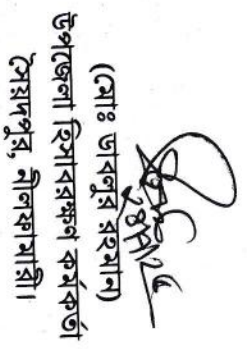 (মোঃ তাবনুর রহমান)
উপজেলা হিসাবরক্ষণ কর্মকর্তা
সৈয়দপুর, নীলফামারী।